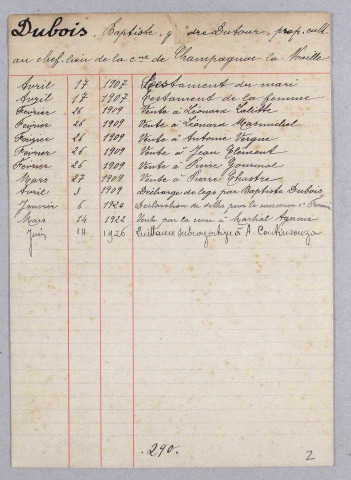 Dubois, Baptiste, q. dre Dutour, prop. cult.
au chef-lieu de la cne de Champagnac la Noaille
Avril 17 1907 Testament du mari
Avril 17 1907 Testament de la femme
Février 26 1909 Vente à Léonard
Février 26 1909 Vente à Léonard
Février 26 1909 Vente à Antoine Vergne
Février 26 1909 Vente à Jean Clément
Février 26 1909 Vente à Pierre Gourmol
Mars 27 1909 Vente à Pierre Chastre
Avril 3 1909 Décharge de legs par Baptiste Dubois
Janvier 6 1920 Déclaration de dettes pour la succession
Mars 14 1922 Vente par la veuve à Martial
Juin 14 1926 Quittance subrogative à A.
.290.
2